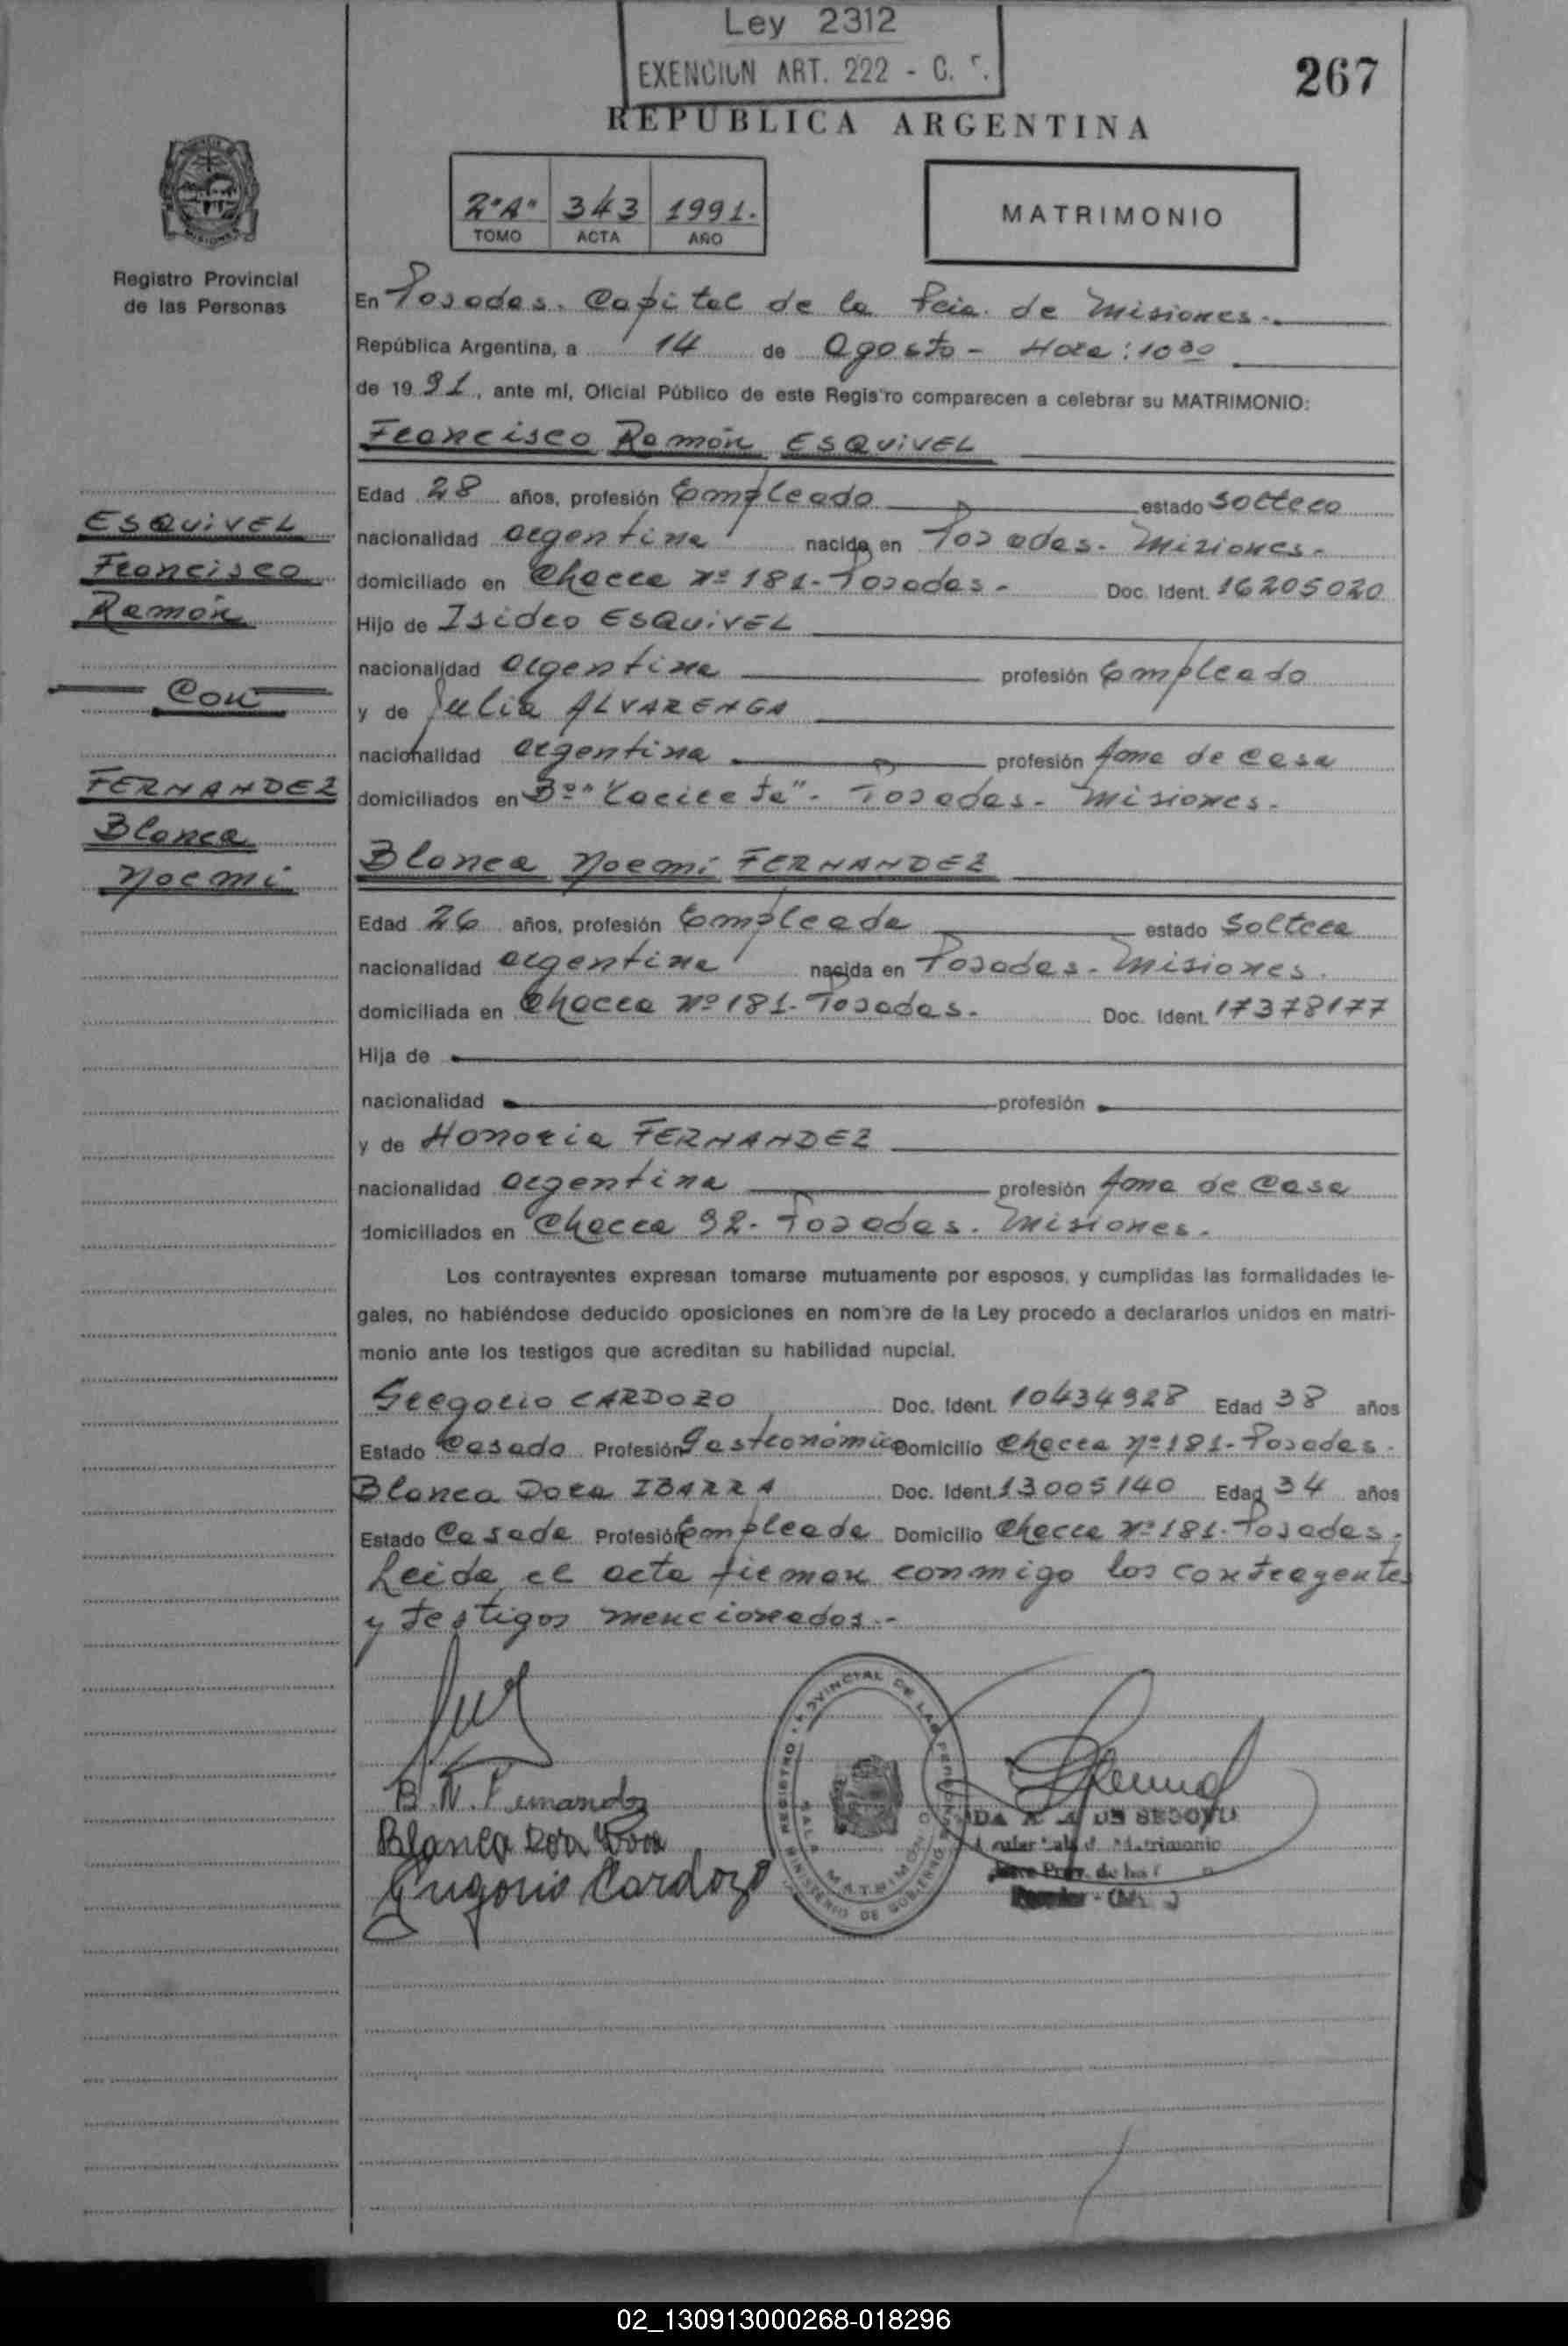 Ley 2312
EXENCION ART. 222 - C.
267
REPUBLICA ARGENTINA
2º"A" 343 1991.
TOMO ACTA AÑO
MATRIMONIO
MISIONES
Registro Provincial
de las Personas
En Posadas. Capital de la Pcia. de Misiones.-
República Argentina, a 14 de Agosto - Hora: 10 30
de 1991, ante mí, Oficial Público de este Registro comparecen a celebrar su MATRIMONIO:
Francisco Ramón ESQUIVEL
Edad 28 años, profesión Empleado estado Soltero
nacionalidad argentina nacido en Posadas. Misiones.-
domiciliado en Chacra Nº 181- Posadas.- Doc. Ident. 16205020
Hijo de Isidro ESQUIVEL
nacionalidad argentina profesión Empleado
y de Julia ALVARENGA
nacionalidad argentina profesión Ama de Casa
domiciliados en Bº "Yacireta"- Posadas.- Misiones.-
ESQUIVEL
Francisco
Ramón
Con
FERNANDEZ
Blanca
Noemi
Blanca Noemi FERNANDEZ
Edad 26 años, profesión Empleada estado Soltera
nacionalidad argentina nacida en Posadas.- Misiones.
domiciliada en Chacra Nº 181- Posadas.- Doc. Ident. 17378177
Hija de
nacionalidad profesión
y de Honoria FERNANDEZ
nacionalidad argentina profesión Ama de Casa
domiciliados en Chacra 92- Posadas. Misiones.-
Los contrayentes expresan tomarse mutuamente por esposos, y cumplidas las formalidades le-
gales, no habiéndose deducido oposiciones en nombre de la Ley procedo a declararlos unidos en matri-
monio ante los testigos que acreditan su habilidad nupcial.
Gregorio CARDOZO Doc. Ident. 10434928 Edad 38 años
Estado Casado Profesión Gastronómico Domicilio Chacra Nº 181- Posadas.
Blanca Dora IBARRA Doc. Ident. 13005140 Edad 34 años
Estado Casada Profesión Empleada Domicilio Chacra Nº 181- Posadas.
Leida el acta firman conmigo los contrayentes
y testigos mencionados.-
B. N. Fernandez
Blanca Dora
Gregorio Cardozo
REGISTRO PROVINCIAL DE LAS PERSONAS
SALA MATRIMONIO
MINISTERIO DE GOBIERNO
DE BEDOYA
Matrimonio
Prov. de las
02_130913000268-018296